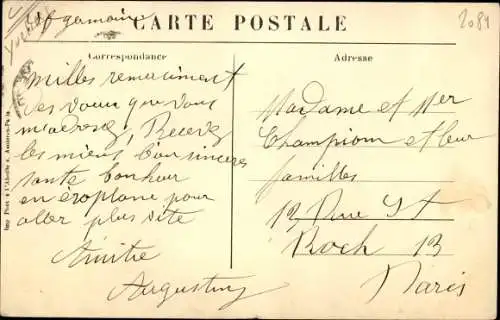 St germain
CARTE POSTALE
2084
Correspondance
Adresse
Milles remerciment
des voeux que vous
m'adresse, Recevez
les miens bien sinceres
sante bonheur
en éroplane pour
aller plus vite
Amitie
Augustine
Madame et Mer
Champion et leur
familles
13 Rue St
Roch 13
Paris